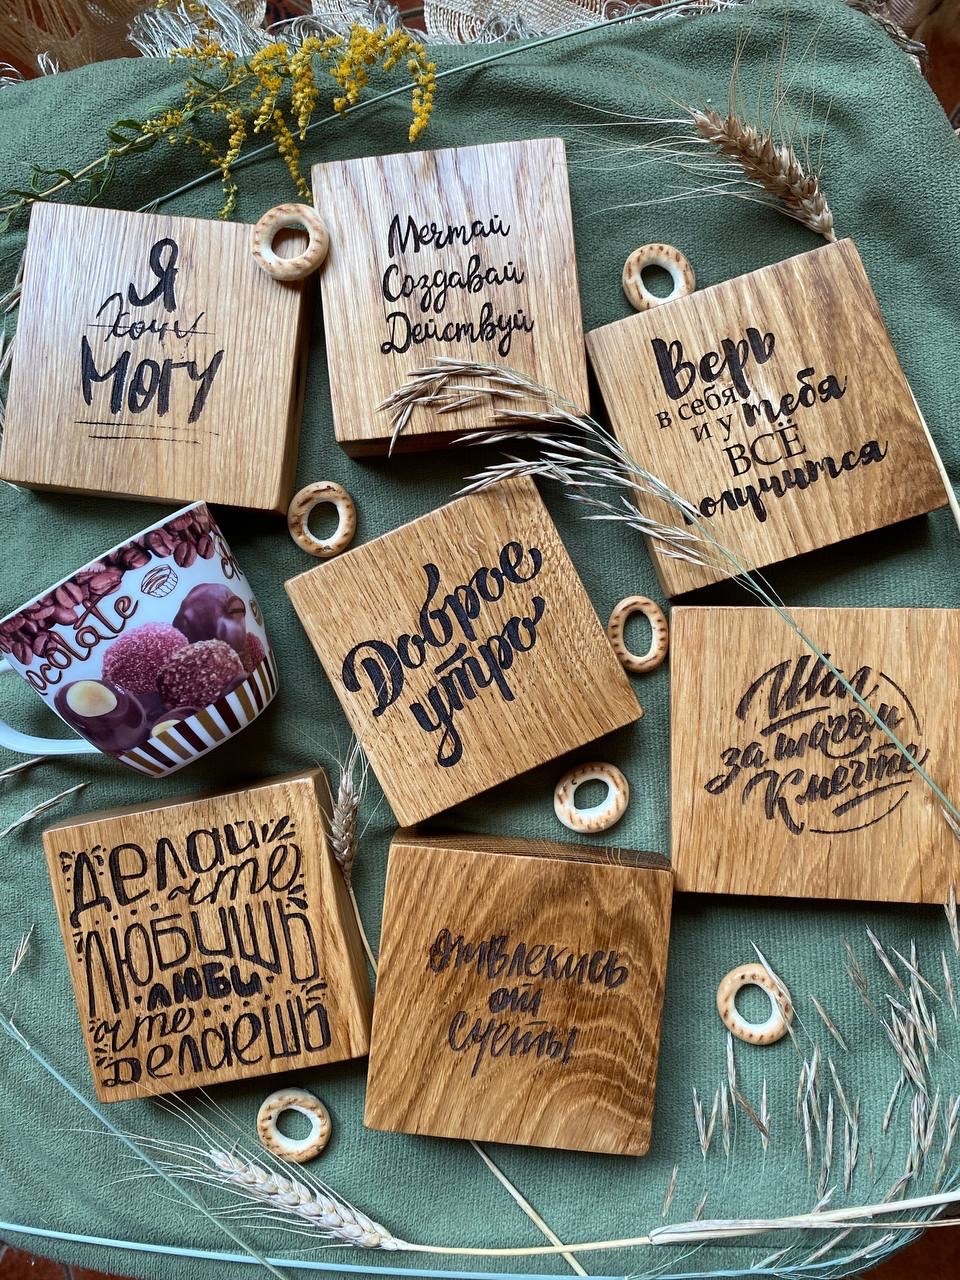 Я
Хочу
Могу
Мечтай
Создавай
Действуй
Верь
в себя
и у тебя
ВСЁ
получится
Доброе
утро
Шаг
за шагом
К мечте
Делай
что
ЛЮБИШЬ
ЛЮБИ
что
Делаешь
Отвлекись
от
суеты
ocolate